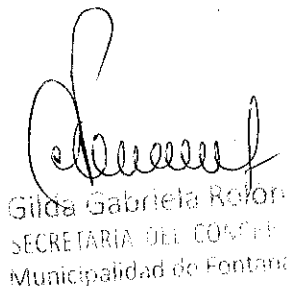 Gilda Gabriela Rolon
SECRETARIA DEL CONCE
Municipalidad de Fontana